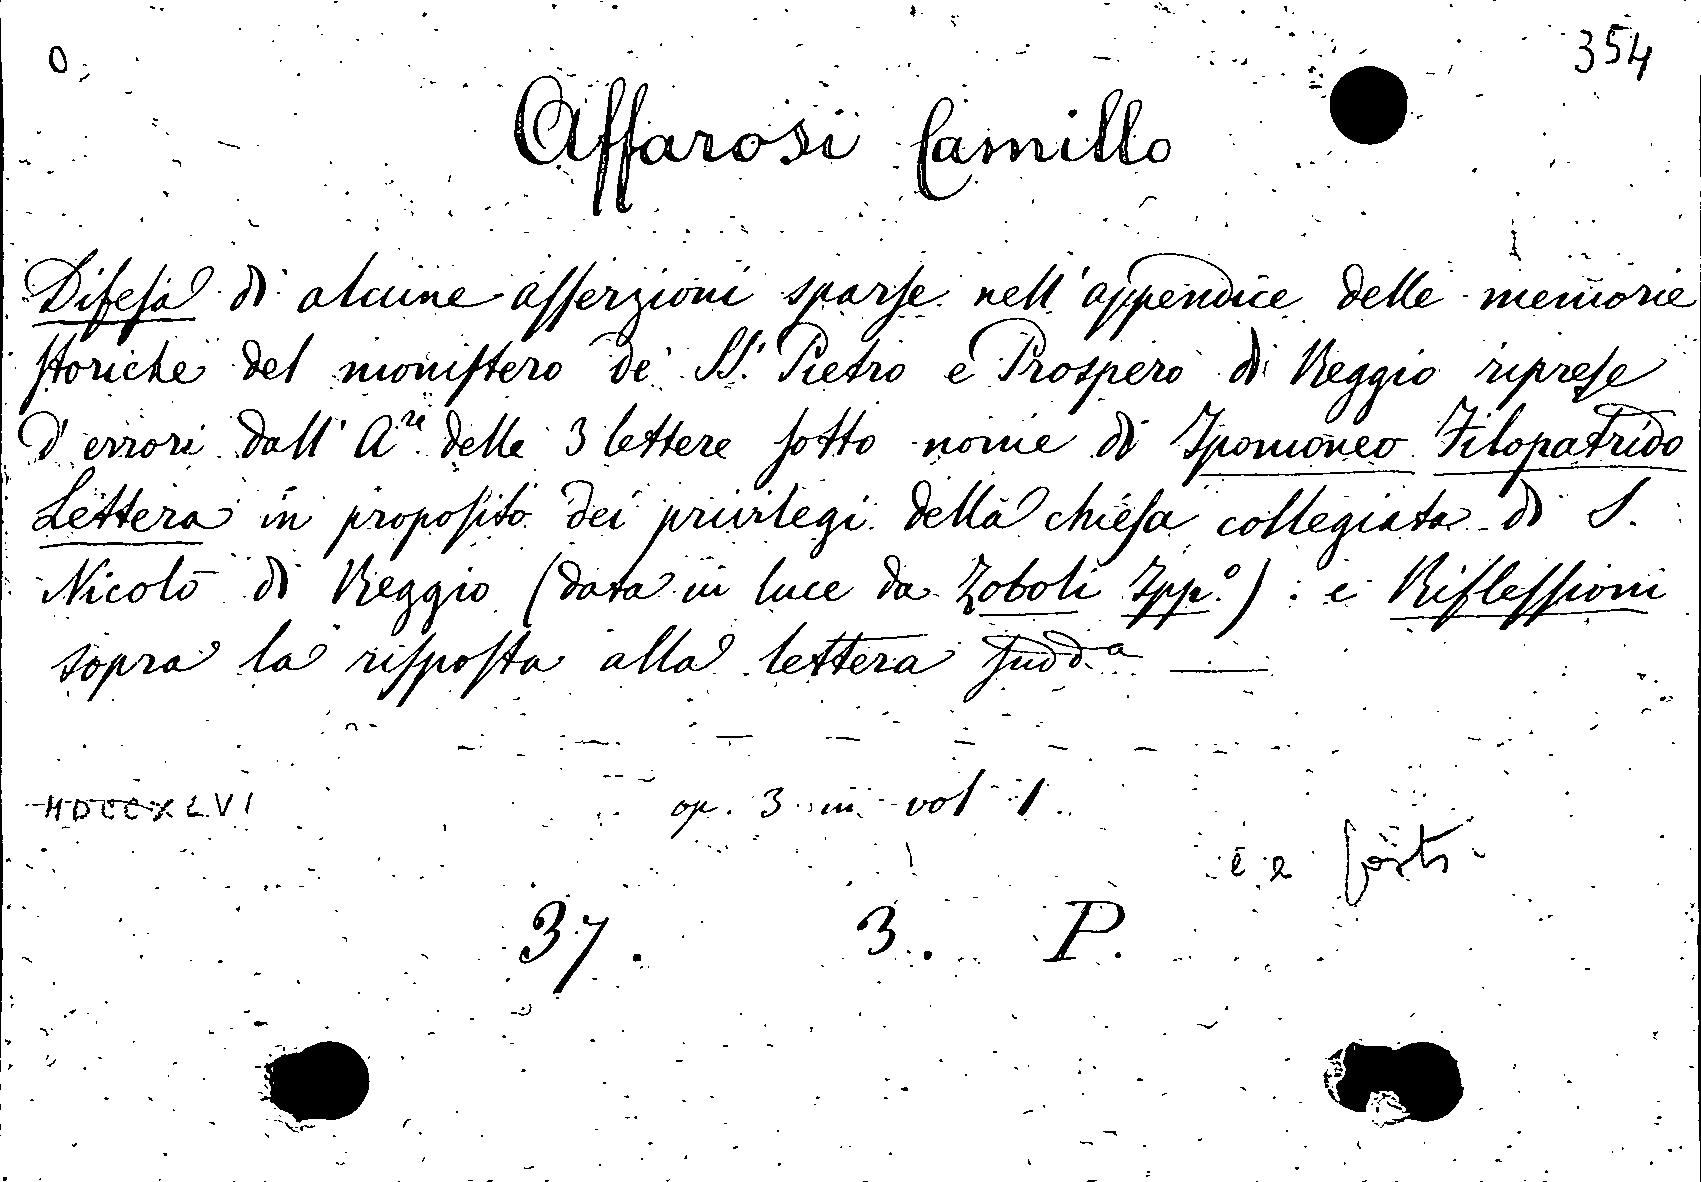 0
354
Affarosi Camillo
Difesa di alcune asserzioni sparse nell'appendice delle memorie
storiche del monistero de' SS. Pietro e Prospero di Reggio riprese
d'errori dall' A.re delle 3 lettere sotto nome di Ipomoneo Filopatrido
Lettera in proposito dei privilegi della chiesa collegiata di S.
Nicolò di Reggio (data in luce da Zoboli Ipp.o) : e Riflessioni
sopra la risposta alla lettera sudd.a —
MDCCXLVI
op. 3 in vol 1.
37. 3. P.